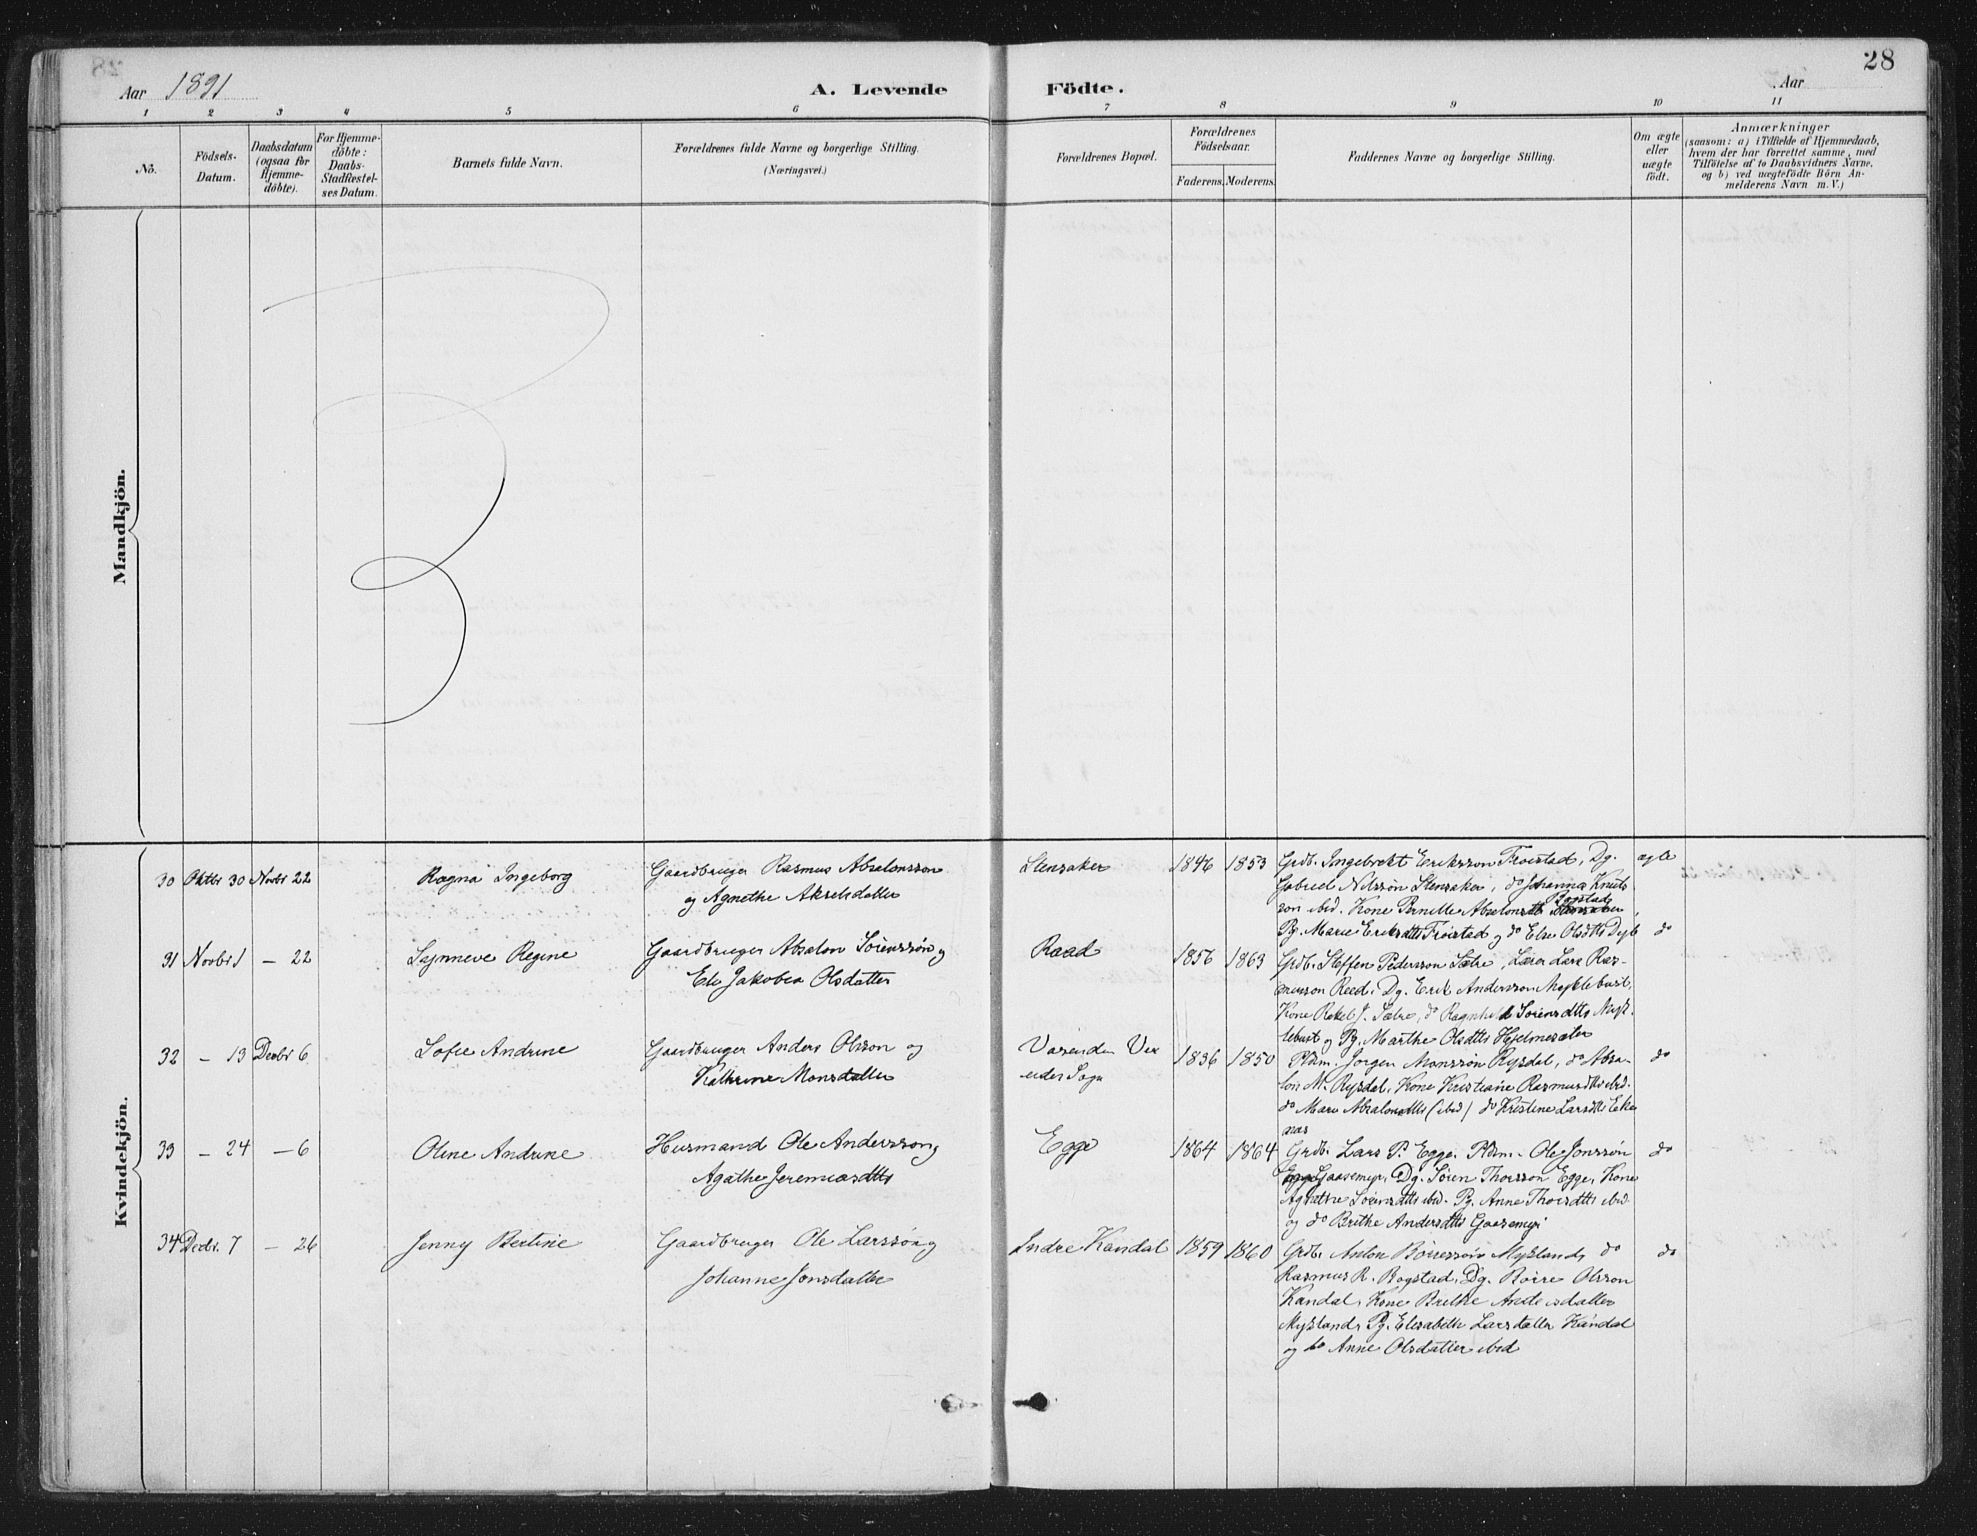 28
Aar 1891
A. Levende Födte.
Aar
1 2 3 4 5 6 7 8 9 10 11
No.
Födsels-
Datum.
Daabsdatum
(ogsaa for
Hjemme-
döbte).
For Hjemme-
döbte:
Daabs-
Stadfæstel-
ses Datum.
Barnets fulde Navn.
Forældrenes fulde Navne og borgerlige Stilling.
(Næringsvei.)
Forældrenes Bopæl.
Forældrenes
Födselsaar.
Faderens. Moderens.
Faddernes Navne og borgerlige Stilling.
Om ægte
eller
uægte
födt.
Anmærkninger
(saasom: a) i Tilfælde af Hjemmedaab,
hvem der har forrettet samme, med
Tilföielse af to Daabsvidners Navne,
og b) ved uægtefödte Börn An-
melderens Navn m. V.)
Mandkjön.
Kvindekjön.
30 Oktbr 30 Novbr 22 Ragna Ingeborg
Gaardbruger Rasmus Absalonsson
og Agnethe Akselsdatter
Stensaker 1846 1853
Grdb. Ingebrekt Eriksson Froistad, Dg.
Gabriel Nilssön Stensaker, do Johannes Knuts
son ibid. Kone Pernille Absalonsdtr
Pg. Marie Eriksdtts Froistad og do Else Olsdtts
ægte
31 Novbr 1 — 22 Synneve Regine
Gaardbruger Absalon Sörenssön og
Jakobea Olsdatter
Raad 1856 1863
Grdb. Steffen Pedersson Sætre, Lærer Lars Ras-
musson Reed, Dg. Erik Andersson Myklebust,
Kone Rakel J. Sætre, do Ragnhild Sörensdtts Myk-
lebust og Pg. Marthe Olsdtts Hjelmesæter
do
32 — 13 Decbr 6 Sofie Andrine
Gaardbruger Anders Olsson og
Kathrine Monsdatter
Sogn 1836 1850
Pdm. Jørgen Monssön Rysdal, do Absa-
lon M. Rysdal, Kone Kristiane Rasmusdtts ibid.
do Mari Absalonsdtts (ibid) do Kristine Larsdtts Eike
nes
do
33 — 24 — 6 Oline Andrine
Husmand Ole Andersson og
Agathe Jeremiasdtts
Egge 1864 1864
Grdb. Lars P. Egge, Pdm. Ole Jonssön
Gaasemyr, Dg. Sören Thorsson Egge, Kone
Agnethe Sörensdtts ibid. Pg. Anne Thorsdtts ibid
og do Brithe Andersdtts Gaasemyr
do
34 Decbr. 7 — 26 Jenny Bertine
Gaardbruger Ole Larssön og
Johanne Jonsdatter
Indre Kandal 1859 1860
Grdb. Anton Börressön Mykland, do
Rasmus R. Bogstad, Dg. Börre Olsson
Kandal, Kone Brithe Andersdatter
Mykland, Pg. Elisabeth Larsdatter Kandal
og do Anne Olsdatter ibid
do